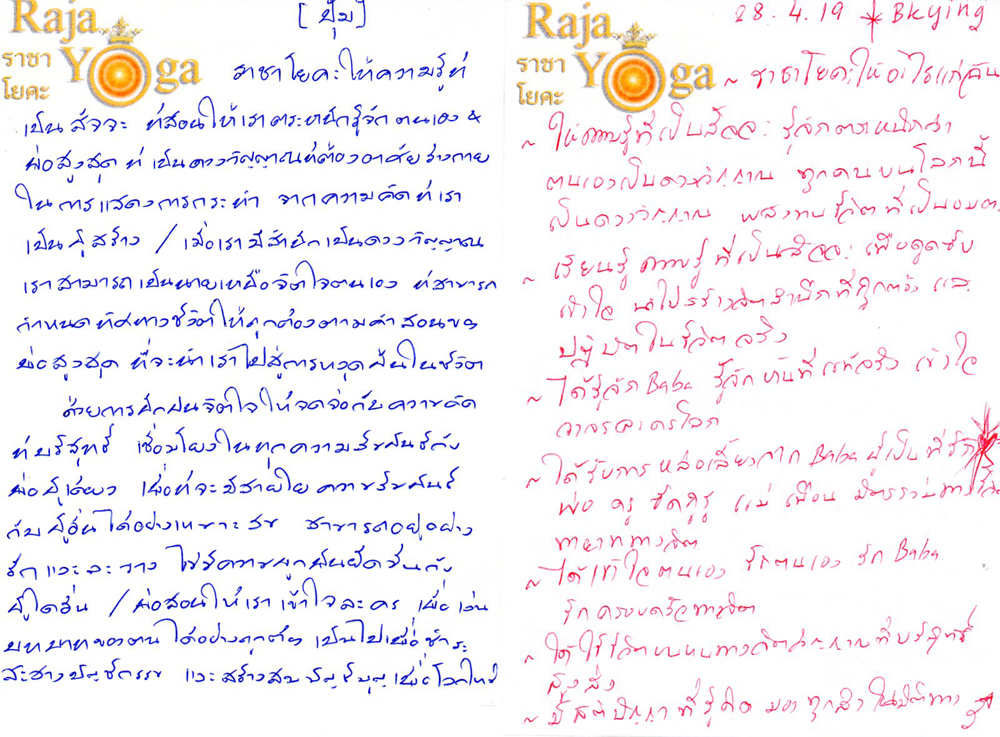 Raja Yoga
ราชา
โยคะ
[ปุ้ม]
ราชาโยคะให้ความรู้ที่
เป็นสัจจะ ที่สอนให้เราตระหนักรู้จักตนเอง &
พ่อสูงสุด ที่เป็นดวงวิญญาณที่ต้องอาศัยร่างกาย
ในการแสดงการกระทำ จากความคิดที่เรา
เป็นผู้สร้าง / เมื่อเรามีสำนึกเป็นดวงวิญญาณ
เราสามารถเป็นนายเหนือจิตใจตนเอง ที่สามารถ
กำหนดทิศทางชีวิตให้ถูกต้องตามคำสอนของ
พ่อสูงสุด ที่จะนำเราไปสู่การหลุดพ้นในชีวิต
ด้วยการฝึกฝนจิตใจให้จดจ่อกับความคิด
ที่บริสุทธิ์ เชื่อมโยงในทุกความสัมพันธ์กับ
พ่อผู้เดียว เพื่อที่จะมีสายใยความสัมพันธ์
กับผู้อื่นได้อย่างเหมาะสม สามารถอยู่อย่าง
รักและละวาง ไม่มีความผูกพันยึดมั่นกับ
ผู้ใดอื่น / พ่อสอนให้เราเข้าใจละคร เพื่อเล่น
บทบาทของตนได้อย่างถูกต้อง เป็นไปเพื่อชำระ
สะสางบัญชีกรรม และสร้างสมบัญชีบุญเพื่อโลกใหม่
Raja Yoga
ราชา
โยคะ
28.4.19 Bkying
~ ราชาโยคะให้อะไรแก่ฉัน
~ ให้ความรู้ที่เป็นสัจจะ รู้จักตระหนักว่า
ตนเองเป็นดวงวิญญาณ ทุกคนบนโลกนี้
เป็นดวงวิญญาณ พลังงานชีวิตที่เป็นอมตะ
~ เรียนรู้ความรู้ที่เป็นสัจจะ เพื่อดูดซับ
เข้าใจ นำไปสร้างจิตสำนึกที่ถูกต้อง และ
ปฏิบัติในชีวิตจริง
~ ได้รู้จัก Baba รู้จักฉันที่แท้จริง เข้าใจ
วงจรละครโลก
~ ได้รับการหล่อเลี้ยงจาก Baba ผู้เป็นที่รัก
พ่อ ครู สัตกูรู แม่ เพื่อน มิตรร่วมทางชีวิต
ทายาททางจิต
~ ได้เข้าใจตนเอง รักตนเอง รัก Baba
รักครอบครัวทางจิต
~ ได้ใช้ชีวิตบนหนทางจิตวิญญาณที่บริสุทธิ์
สูงส่ง
~ มีสติปัญญาที่รู้คิด มองทุกสิ่งในมิติทาง